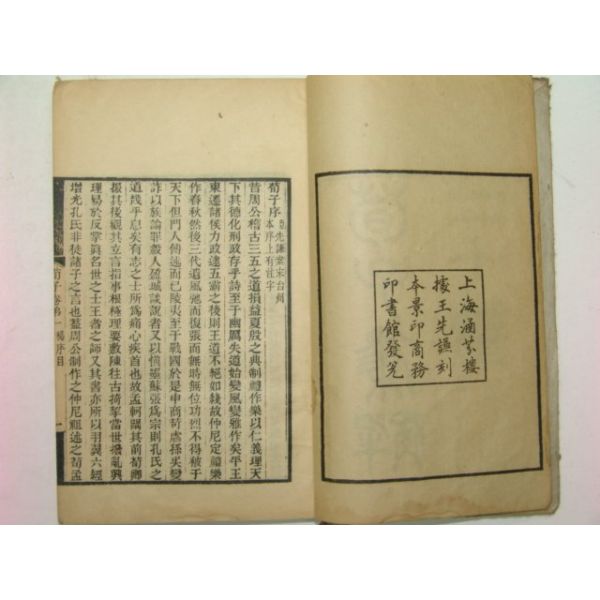 上海涵芬樓
據王先謙刻
本景印商務
印書館發兌
荀子序
先謙案宋台州
本序上有注字
昔周公稽古三五之道損益夏殷之典制禮作樂以仁義理天
下其德化刑政存乎詩至于幽厲失道始變風變雅作矣平王
東遷諸侯力政逮五霸之後則王道不絕如綫故仲尼定禮樂
作春秋然後三代遺風弛而復張而無時無位功烈不得被于
天下但門人傳述而已陵夷至于戰國於是申商苛虐孫吳變
詐以族論罪殺人盈城談說者又以愼墨蘇張爲宗則孔氏之
道幾乎息矣有志之士所爲痛心疾首也故孟軻闡其前荀卿
振其後觀其立言指事根極理要敷陳往古掎挈當世撥亂興
理易於反掌眞名世之士王者之師又其書亦所以羽翼六經
增光孔氏非徒諸子之言也蓋周公制作之仲尼祖述之荀孟
荀子卷第一楊序目
一